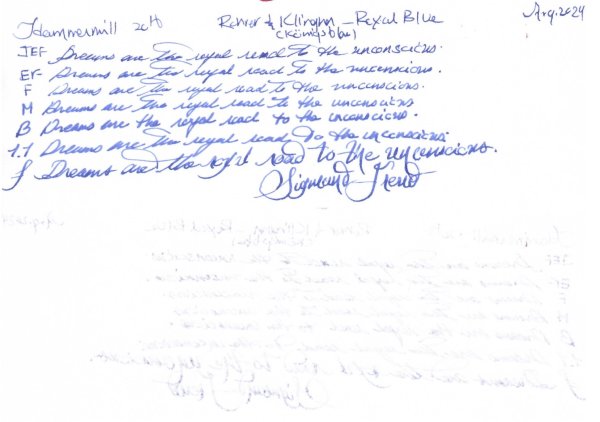 Hammermill 20 lb Rohrer & Klingner – Royal Blue Aug. 2024
(Königsblau)
JEF Dreams are the royal road to the unconscious.
EF Dreams are the royal road to the unconscious.
F Dreams are the royal road to the unconscious.
M Dreams are the royal road to the unconscious
B Dreams are the royal road to the unconscious.
1.1 Dreams are the royal road to the unconscious
f Dreams are the royal road to the unconscious.
Sigmund Freud